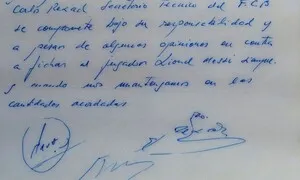 Carles Rexach Secretario Técnico del F.C.B
se compromete bajo su responsabilidad y
a pesar de algunas opiniones en contra
a fichar al jugador Lionel Messi siempre
y cuando nos mantengamos en las
cantidades acordadas